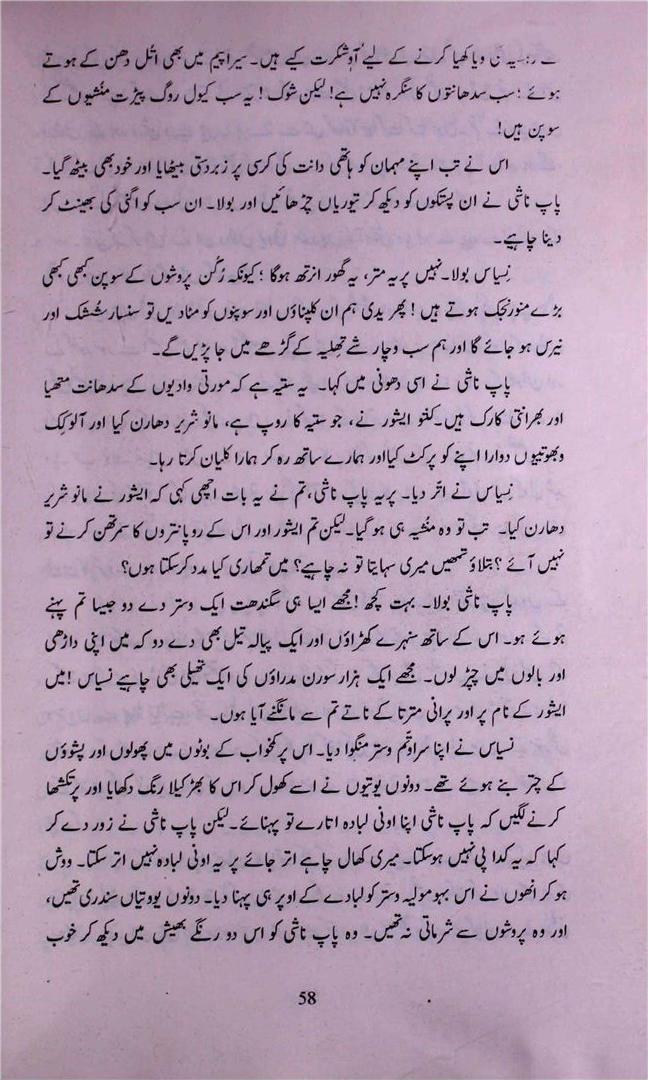 ویاکھیا کرنے کے لیے آوشکرت کیے ہیں۔ سیراپیم میں بھی اتُل دھن کے ہوتے
ہوئے؛ سب سدھانتوں کا سنگرہ نہیں ہے! لیکن شوک! یہ سب کیول روگ پیڑت منُشیوں کے
سوپن ہیں!
اس نے تب اپنے مہمان کو ہاتھی دانت کی کرسی پر زبردستی بیٹھایا اور خود بھی بیٹھ گیا۔
پاپ ناشی نے ان پستکوں کو دیکھ کر تیوریاں چڑھائیں اور بولا۔ ان سب کو اگنی کی بھینٹ کر
دینا چاہیے۔
نِسیاس بولا۔ نہیں پریہ متر، یہ گھور انرتھ ہوگا؛ کیونکہ رُگن پروشوں کے سوپن کبھی کبھی
بڑے منورنجک ہوتے ہیں! پھر یدی ہم ان کلپناؤں اور سوپنوں کو مٹا دیں تو سنسار شُشک اور
نیرس ہو جائے گا اور ہم سب وچار شے تھلیہ کے گڑھے میں جا پڑیں گے۔
پاپ ناشی نے اسی دھونی میں کہا۔ یہ ستیہ ہے کہ مورتی وادیوں کے سدھانت متھیا
اور بھرانتی کارک ہیں۔ کنتو ایشور نے، جو ستیہ کا روپ ہے، مانو شریر دھارن کیا اور آلوکِک
وبھوتیوں دوارا اپنے کو پرکٹ کیا اور ہمارے ساتھ رہ کر ہمارا کلیان کرتا رہا۔
نِسیاس نے اتّر دیا۔ پریہ پاپ ناشی، تم نے یہ بات اچھی کہی کہ ایشور نے مانو شریر
دھارن کیا۔ تب تو وہ منُشیہ ہی ہوگیا۔ لیکن تم ایشور اور اس کے روپانتروں کا سمرتھن کرنے تو
نہیں آئے؟ بتلاؤ تمھیں میری سہایتا تو نہ چاہیے؟ میں تمھاری کیا مدد کرسکتا ہوں؟
پاپ ناشی بولا۔ بہت کچھ! مجھے ایسا ہی سگندھت ایک وستر دے دو جیسا تم پہنے
ہوئے ہو۔ اس کے ساتھ سنہرے کھڑاؤں اور ایک پیالہ تیل بھی دے دو کہ میں اپنی داڑھی
اور بالوں میں چپڑ لوں۔ مجھے ایک ہزار سورن مدراؤں کی ایک تھیلی بھی چاہیے نسیاس! میں
ایشور کے نام پر اور پرانی مترتا کے ناتے تم سے مانگنے آیا ہوں۔
نسیاس نے اپنا سراوتّم وستر منگوا دیا۔ اس پر کمخواب کے بوٹوں میں پھولوں اور پشوؤں
کے چتر بنے ہوئے تھے۔ دونوں یوتیوں نے اسے کھول کر اس کا بھڑکیلا رنگ دکھایا اور پرتکشھا
کرنے لگیں کہ پاپ ناشی اپنا اونی لبادہ اتارے تو پہنائے۔ لیکن پاپ ناشی نے زور دے کر
کہا کہ یہ کدا پی نہیں ہوسکتا۔ میری کھال چاہے اتر جائے پر یہ اونی لبادہ نہیں اتر سکتا۔ ووش
ہو کر انھوں نے اس بہومولیہ وستر کو لبادے کے اوپر ہی پہنا دیا۔ دونوں یووتیاں سندری تھیں،
اور وہ پروشوں سے شرماتی نہ تھیں۔ وہ پاپ ناشی کو اس دو رنگے بھیش میں دیکھ کر خوب
58